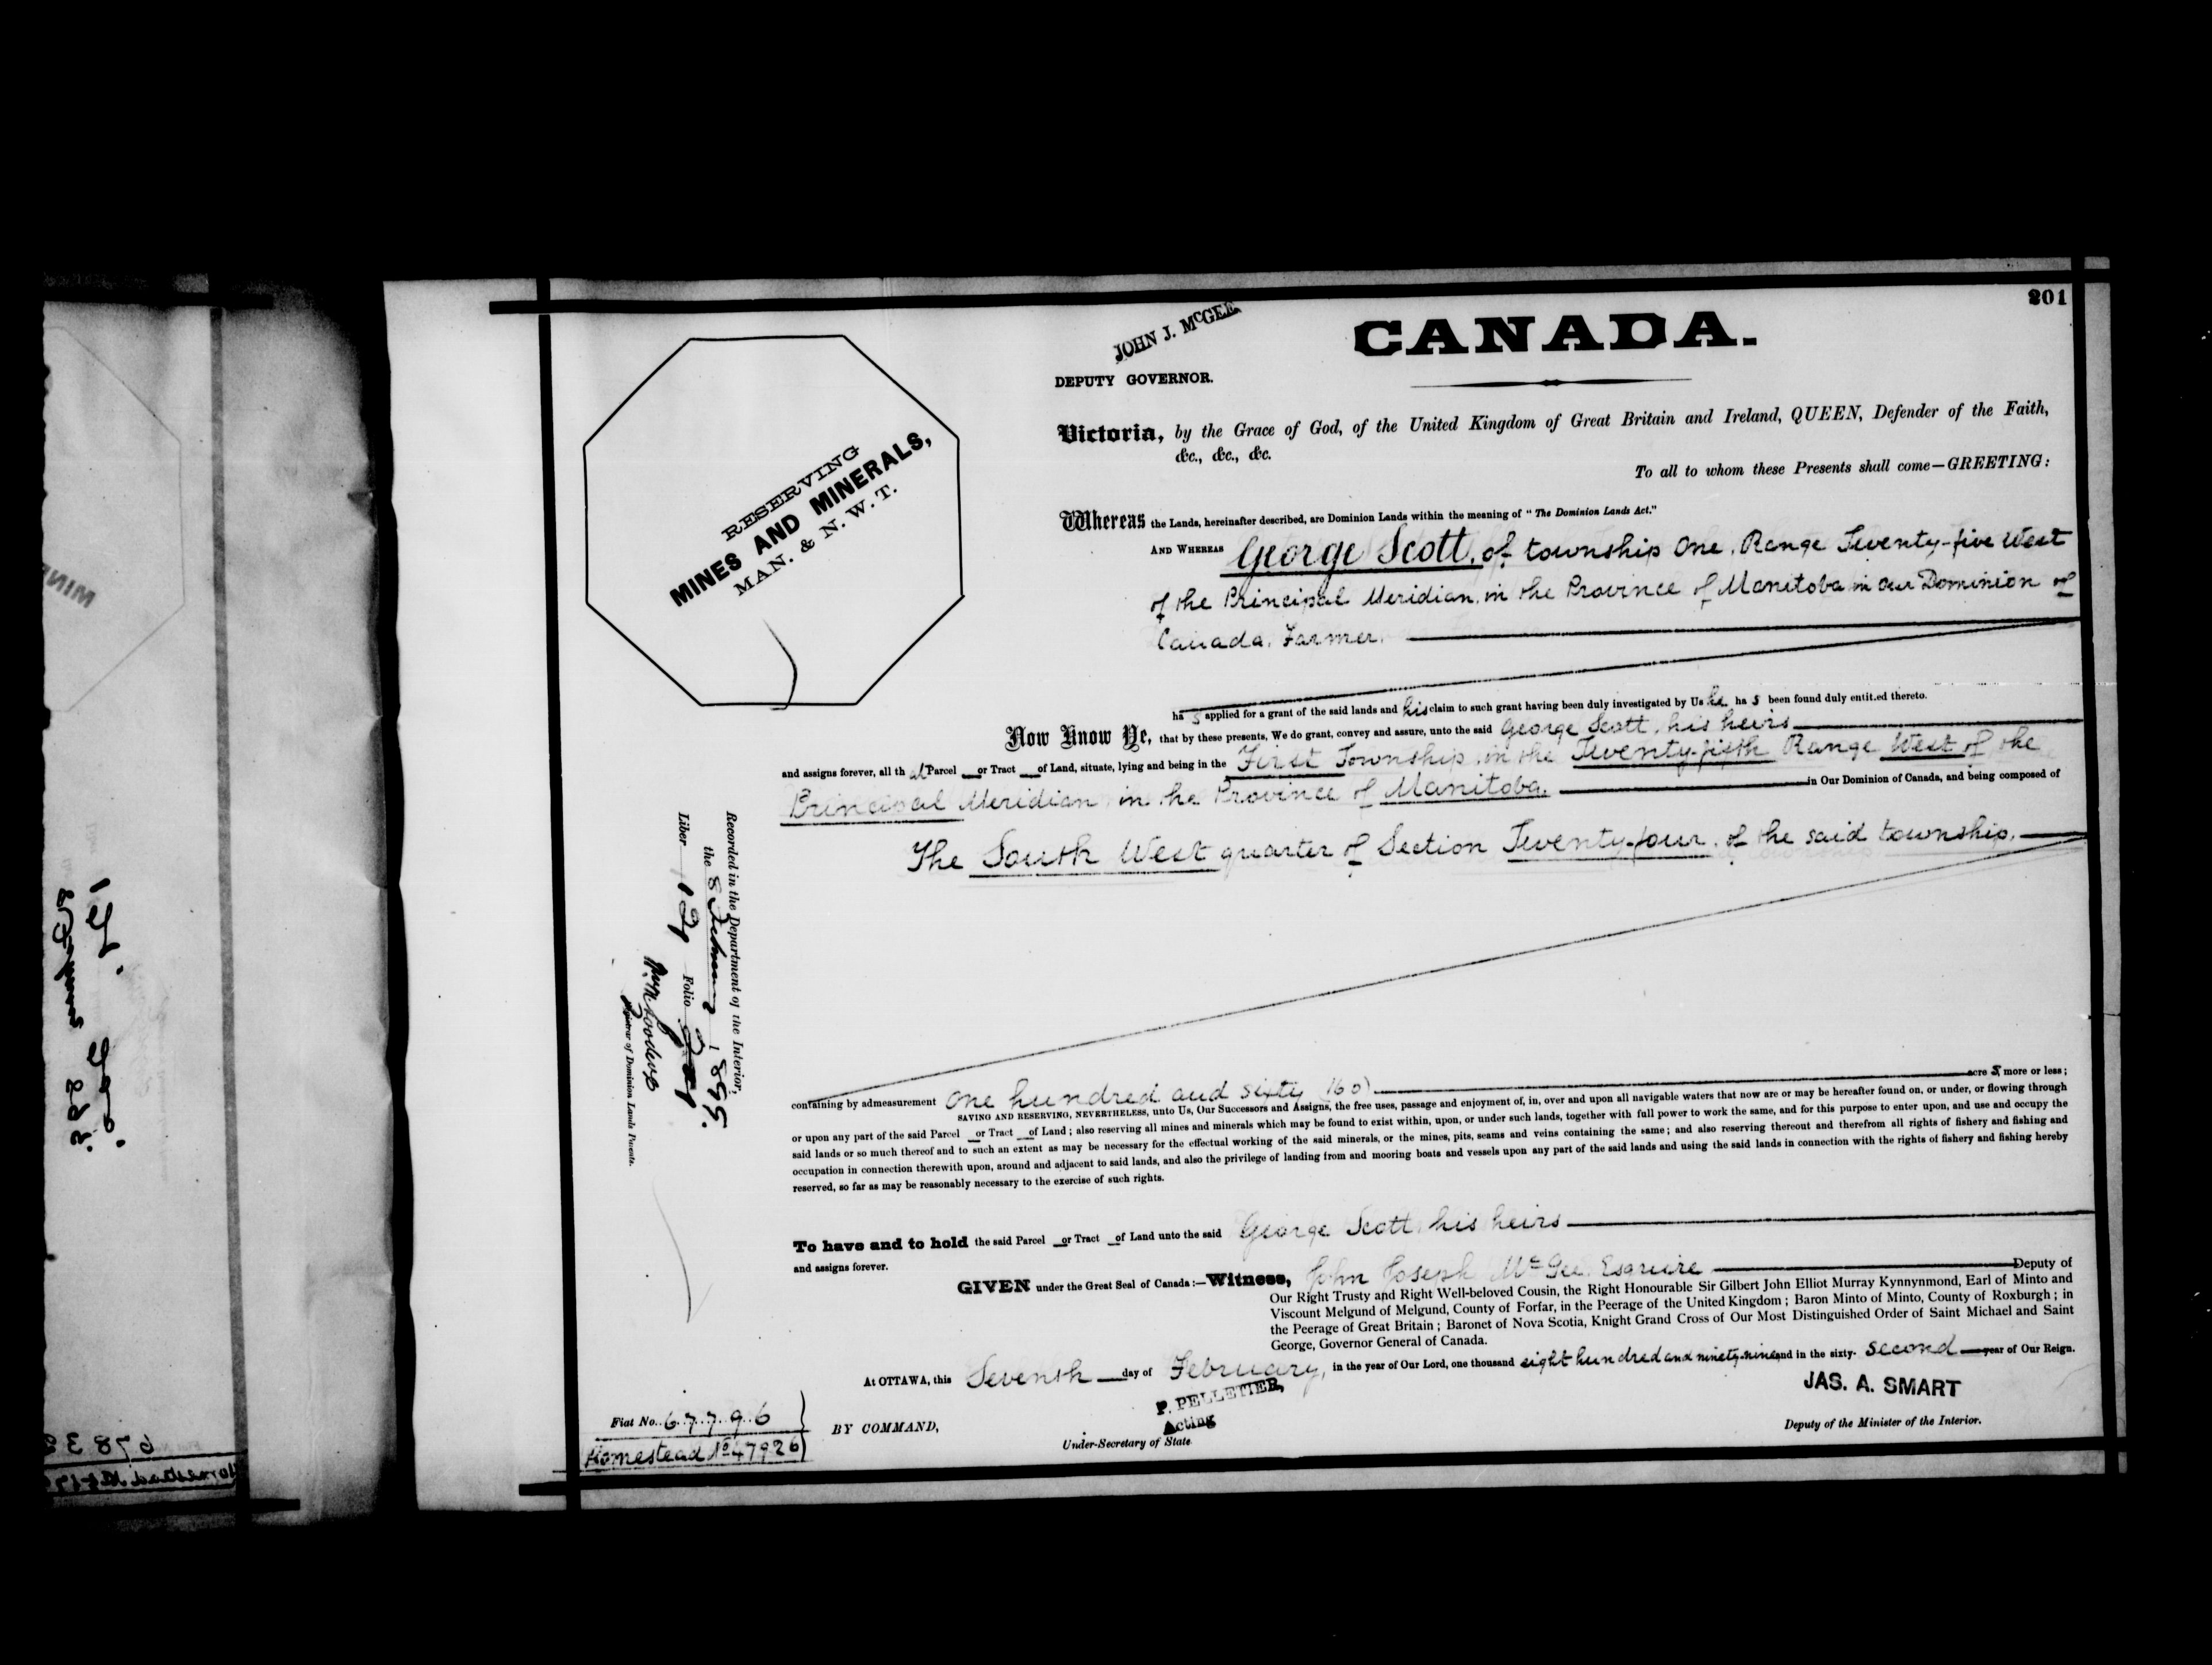 201
JOHN J. McGEE
DEPUTY GOVERNOR.
CANADA.
RESERVING
MINES AND MINERALS,
MAN. & N. W. T.
Victoria, by the Grace of God, of the United Kingdom of Great Britain and Ireland, QUEEN, Defender of the Faith,
&c., &c., &c.
To all to whom these Presents shall come—GREETING:
Whereas the Lands, hereinafter described, are Dominion Lands within the meaning of "The Dominion Lands Act."
AND WHEREAS George Scott, of township One, Range Twenty-five West
of the Principal Meridian, in the Province of Manitoba in our Dominion of
Canada, Farmer.
ha s applied for a grant of the said lands and his claim to such grant having been duly investigated by Us he ha s been found duly entitled thereto.
Now Know Ye, that by these presents, We do grant, convey and assure, unto the said George Scott, his heirs
and assigns forever, all th at Parcel or Tract of Land, situate, lying and being in the First Township, in the Twenty-fifth Range West of the
Principal Meridian, in the Province of Manitoba. in Our Dominion of Canada, and being composed of
The South West quarter of Section Twenty-four, of the said township,
Recorded in the Department of the Interior,
the 8 February 1899.
Liber 121 Folio
Registrar of Dominion Lands Patents.
containing by admeasurement One hundred and sixty (160) acre s, more or less;
SAVING AND RESERVING, NEVERTHELESS, unto Us, Our Successors and Assigns, the free uses, passage and enjoyment of, in, over and upon all navigable waters that now are or may be hereafter found on, or under, or flowing through
or upon any part of the said Parcel or Tract of Land; also reserving all mines and minerals which may be found to exist within, upon, or under such lands, together with full power to work the same, and for this purpose to enter upon, and use and occupy the
said lands or so much thereof and to such an extent as may be necessary for the effectual working of the said minerals, or the mines, pits, seams and veins containing the same; and also reserving thereout and therefrom all rights of fishery and fishing and
occupation in connection therewith upon, around and adjacent to said lands, and also the privilege of landing from and mooring boats and vessels upon any part of the said lands and using the said lands in connection with the rights of fishery and fishing hereby
reserved, so far as may be reasonably necessary to the exercise of such rights.
To have and to hold the said Parcel or Tract of Land unto the said George Scott, his heirs
and assigns forever.
GIVEN under the Great Seal of Canada:—Witness, John Joseph McGee, Esquire Deputy of
Our Right Trusty and Right Well-beloved Cousin, the Right Honourable Sir Gilbert John Elliot Murray Kynnynmond, Earl of Minto and
Viscount Melgund of Melgund, County of Forfar, in the Peerage of the United Kingdom; Baron Minto of Minto, County of Roxburgh; in
the Peerage of Great Britain; Baronet of Nova Scotia, Knight Grand Cross of Our Most Distinguished Order of Saint Michael and Saint
George, Governor General of Canada.
At OTTAWA, this Seventh day of February, in the year of Our Lord, one thousand eight hundred and ninety-nine and in the sixty- second year of Our Reign.
Fiat No. 67796
Homestead No 47926
BY COMMAND,
P. PELLETIER,
Acting
Under-Secretary of State
JAS. A. SMART
Deputy of the Minister of the Interior.